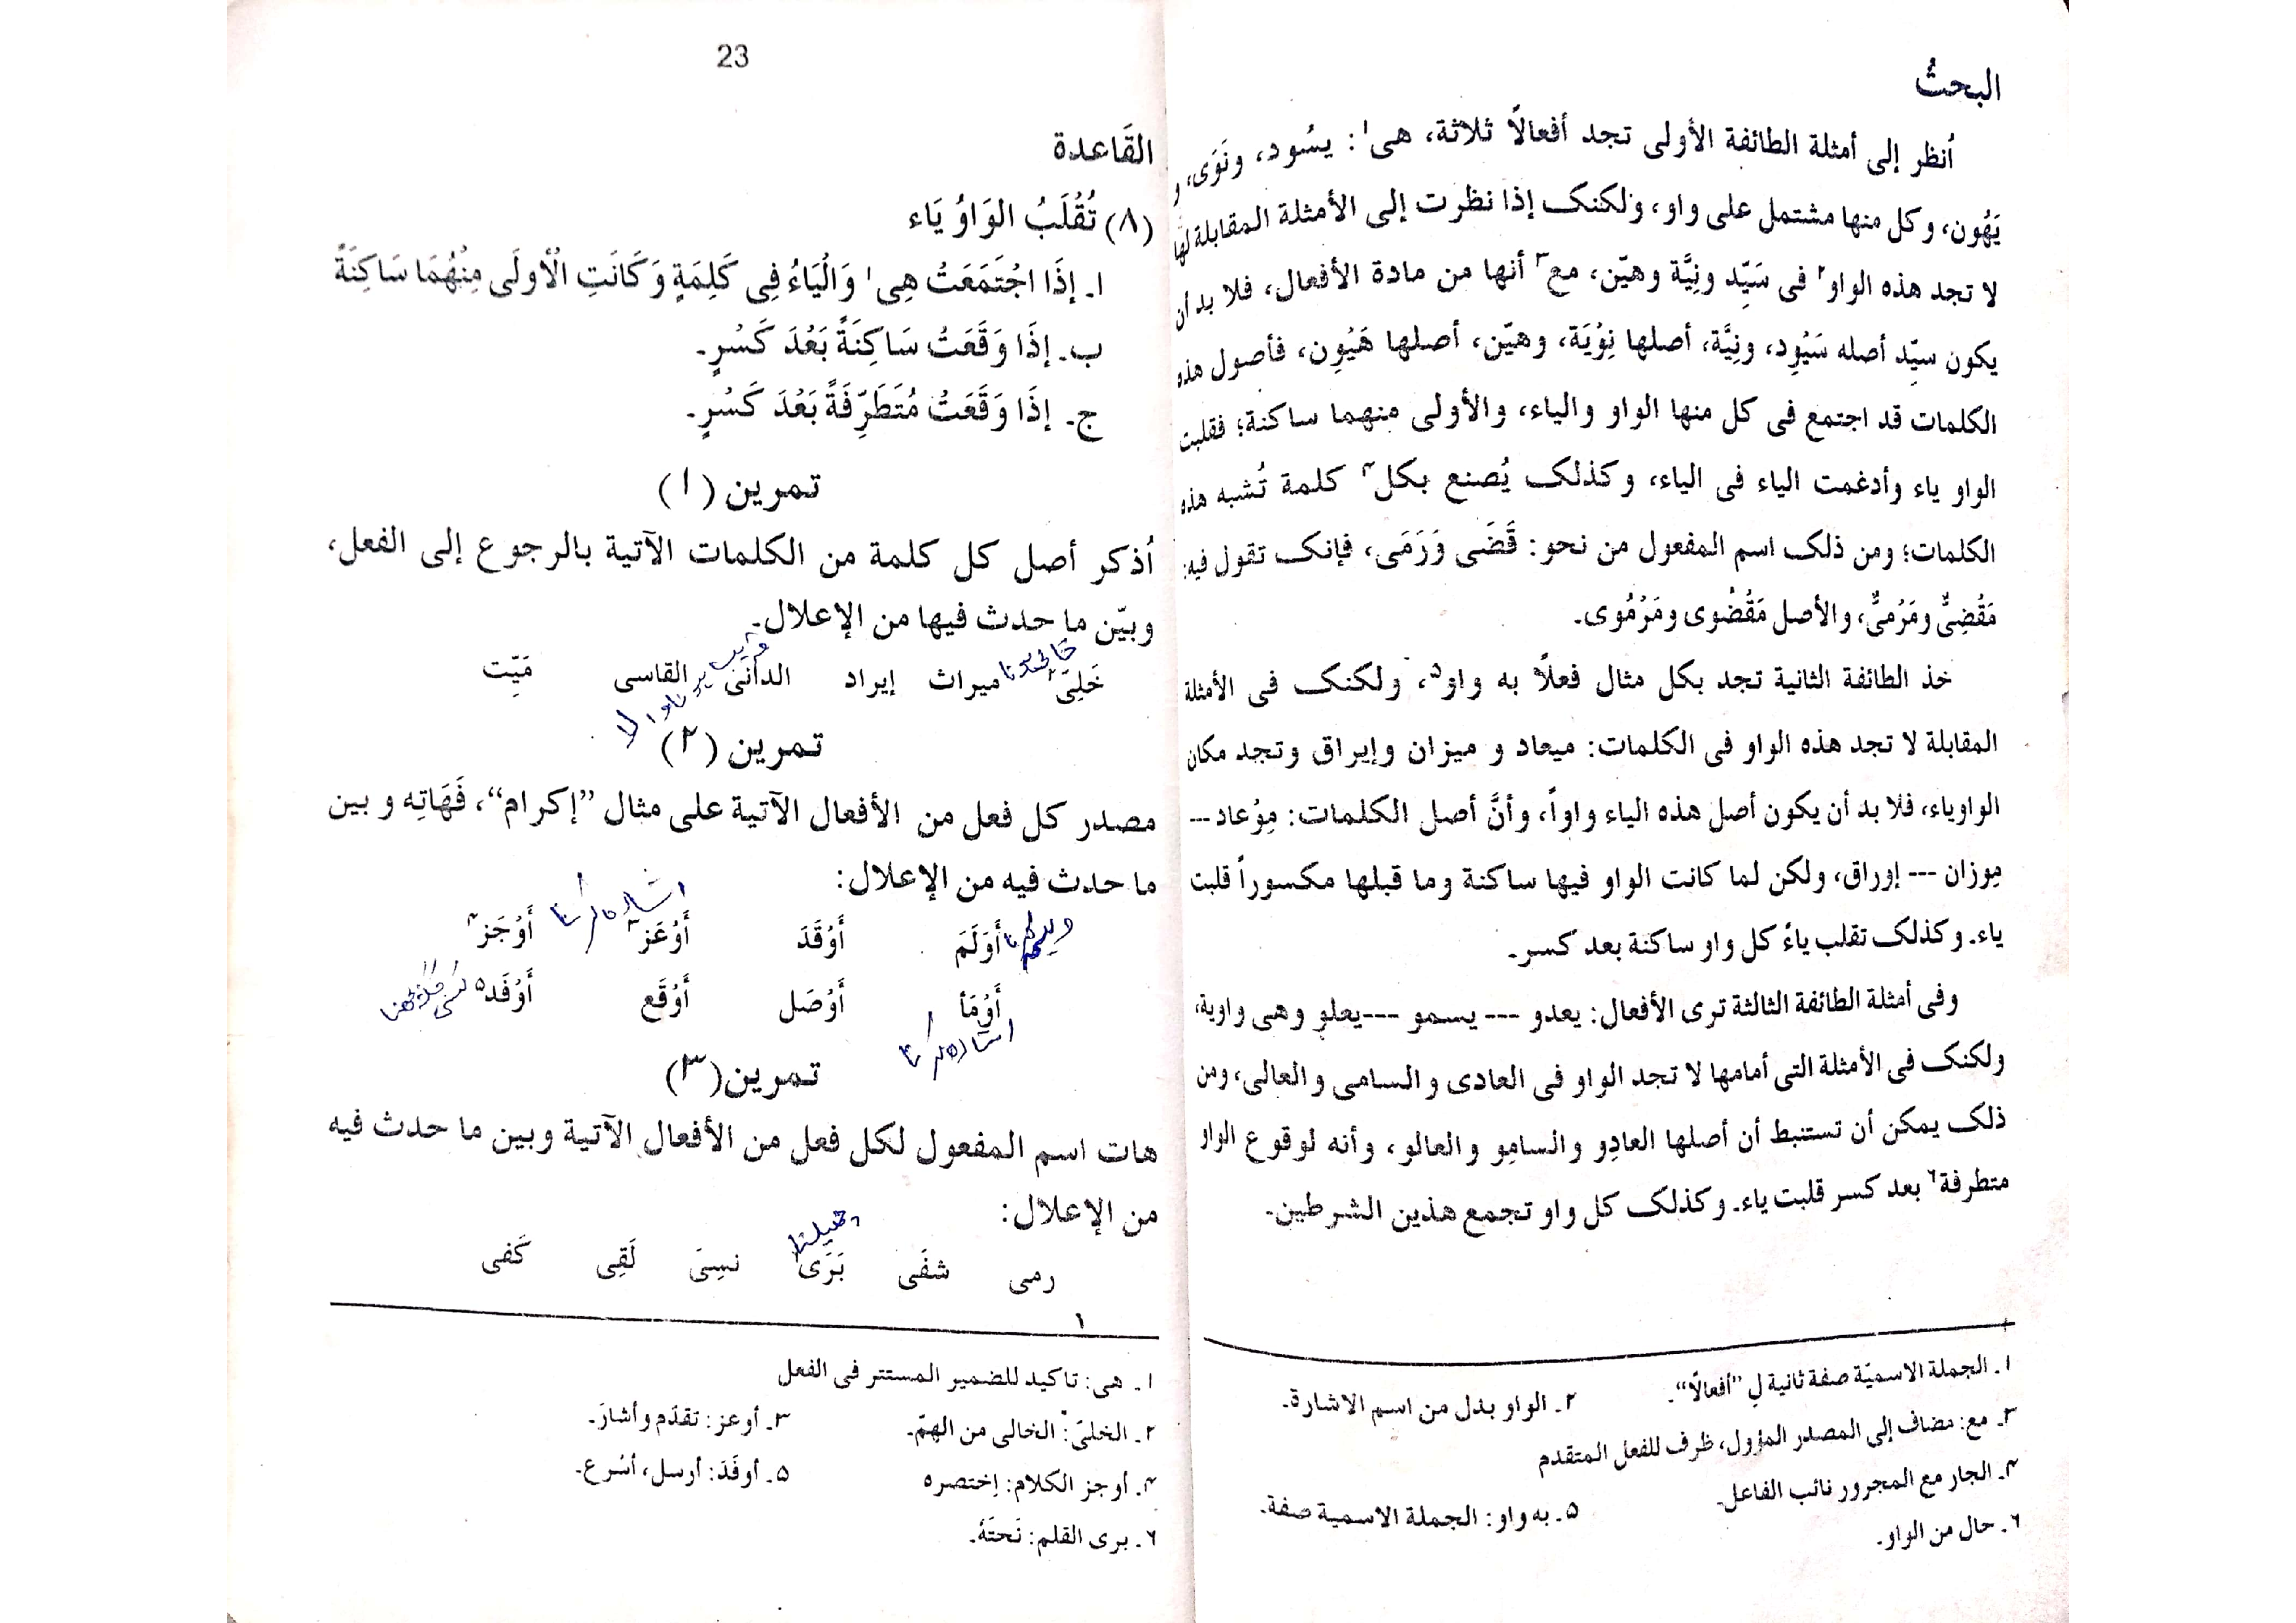 البحثُ
اُنظر إلى أمثلة الطائفة الأولى تجد أفعالًا ثلاثة، هى۱: يسُود، ونَوَى، و
يَهُون، وكل منها مشتمل على واو، ولكنک إذا نظرت إلى الأمثلة المقابلة لها
لا تجد هذه الواو۲ فى سَيِّد ونِيَّة وهيّن، مع۳ أنها من مادة الأفعال، فلا بد أن
يكون سيِّد أصله سَيْوِد، ونِيَّة، أصلها نِوْيَة، وهيّن، أصلها هَيْوِن، فأصول هذه
الكلمات قد اجتمع فى كل منها الواو والياء، والأولى منهما ساكنة؛ فقلبت
الواو ياء وأدغمت الياء فى الياء، وكذلک يُصنع بكل۴ كلمة تُشبه هذه
الكلمات؛ ومن ذلک اسم المفعول من نحو: قَضَى وَرَمَى، فإنک تقول فيه:
مَقْضِىٌّ ومَرْمِىٌّ، والأصل مَقْضُوى ومَرْمُوى۔
خذ الطائفة الثانية تجد بكل مثال فعلًا به واو۵، ولكنک فى الأمثلة
المقابلة لا تجد هذه الواو فى الكلمات: ميعاد و ميزان وإيراق وتجد مكان
الواوياء، فلا بد أن يكون أصل هذه الياء واواً، وأنَّ أصل الكلمات: مِوْعاد ---
مِوزان --- إوراق، ولكن لما كانت الواو فيها ساكنة وما قبلها مكسوراً قلبت
ياء۔ وكذلک تقلب ياءً كل واو ساكنة بعد كسر۔
وفى أمثلة الطائفة الثالثة ترى الأفعال: يعدو --- يسمو ---يعلو وهى واوية،
ولكنک فى الأمثلة التى أمامها لا تجد الواو فى العادى و السامى و العالى، ومن
ذلک يمكن أن تستنبط أن أصلها العادِو و السامِو و العالو، وأنه لوقوع الواو
متطرفة۶ بعد كسر قلبت ياء۔ وكذلک كل واو تجمع هذين الشرطين۔
۱۔ الجملة الاسميّة صفة ثانية لِ ”أفعالًا“۔
۲۔ الواو بدل من اسم الاشارة۔
۳۔ مع: مضاف إلى المصدر المؤول، ظرف للفعل المتقدم
۴۔ الجار مع المجرور نائب الفاعل۔
۵۔ به واو: الجملة الاسمية صفة۔
۶۔ حال من الواو۔
23
القَاعدة
(۸) تُقْلَبُ الوَاوُ يَاء
ا۔ إذَا اجْتَمَعَتْ هِى۱ وَالْيَاءُ فِى كَلِمَةٍ وَكَانَتِ الْأولَى مِنْهُمَا سَاكِنَةً
ب۔ إذَا وَقَعَتْ سَاكِنَةً بَعْدَ كَسْرٍ۔
ج۔ إذَا وَقَعَتْ مُتَطَرِّفَةً بَعْدَ كَسْرٍ۔
تمرين (۱)
اُذكر أصل كل كلمة من الكلمات الآتية بالرجوع إلى الفعل،
وبيّن ما حدث فيها من الإعلال۔
خَلِىّ۲ ميراث إيراد الدانى القاسى مَيِّت
تمرين (۲)
مصدر كل فعل من الأفعال الآتية على مثال ”إكرام“، فَهَاتِه و بين
ما حدث فيه من الإعلال:
أَوَلَمَ أَوْقَدَ أَوْعَز۳ أَوْجَز۴
اشاره كرنا
أَوْمَأ أَوْصَل أَوْقَع أَوْفَد۵
اشاره كرنا
تمرين (۳)
هات اسم المفعول لكل فعل من الأفعال الآتية وبين ما حدث فيه
من الإعلال:
رمى شفَى بَرَى نسِىَ لَقِى كَفى
۱
۱۔ هى: تاكيد للضمير المستتر فى الفعل
۲۔ الخلىّ: الخالى من الهمّ۔
۳۔ أوعز: تقدّم وأشارَ۔
۴۔ أوجز الكلام: اِختصره
۵۔ أوفَدَ: أرسل، أسْرع۔
۶۔ برى القلم: نَحتَهٗ۔